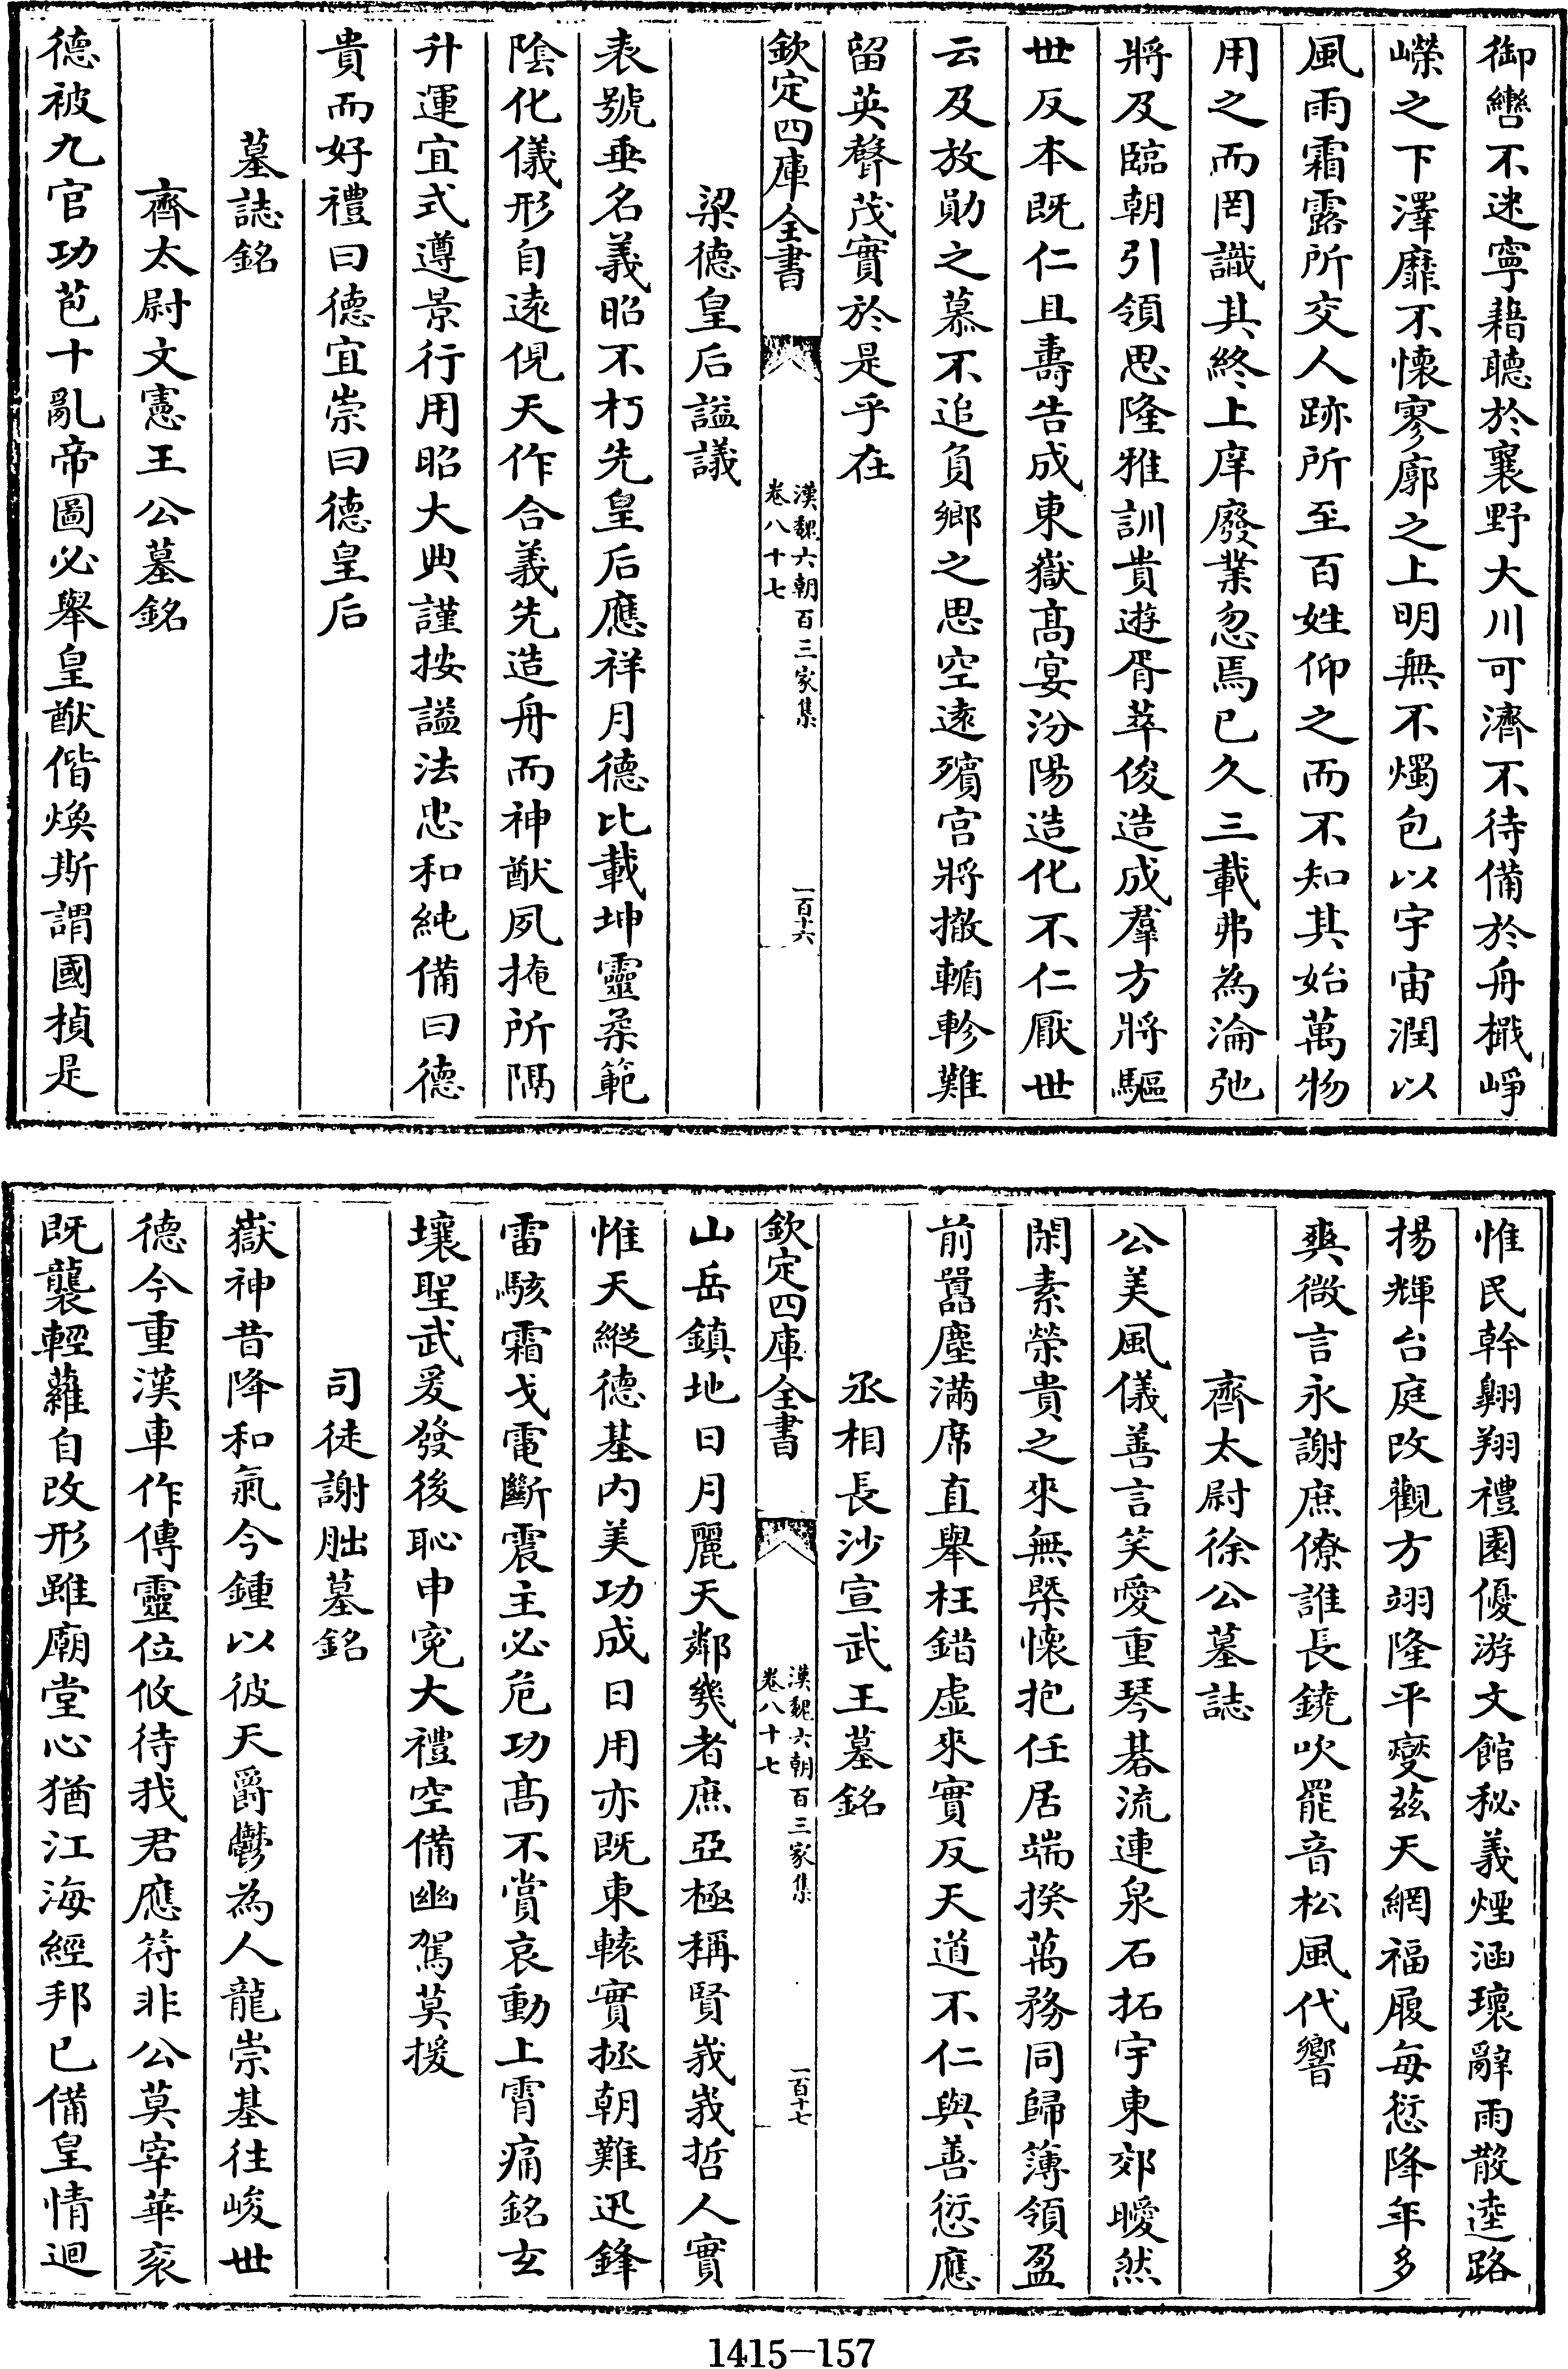 御轡不迷寧藉聽於襄野大川可濟不待備於舟檝崢
嶸之下澤靡不懷寥廓之上明無不燭包以宇宙潤以
風雨霜露所交人跡所至百姓仰之而不知其始萬物
用之而罔識其終上庠廢業忽焉已久三載弗為淪弛
將及臨朝引領思隆雅訓貴遊胥萃俊造成羣方將驅
世反本既仁且壽告成東嶽髙宴汾陽造化不仁厭世
云及放勛之慕不追負鄉之思空遠殯宫將撤輴軫難
留英聲茂實於是乎在
欽定四庫全書
漢魏六朝百三家集
卷八十七
一百十六
梁德皇后謚議
表號垂名義昭不朽先皇后應祥月德比載坤靈柔範
陰化儀形自遠俔天作合義先造舟而神猷夙掩所隔
升運宜式遵景行用昭大典謹按謚法忠和純備曰德
貴而好禮曰德宜崇曰德皇后
墓誌銘
齊太尉文憲王公墓銘
德被九官功苞十亂帝圖必舉皇猷偕煥斯謂國楨是
惟民幹翺翔禮園優游文館秘義煙涵瓌辭雨散逵路
揚輝台庭改觀方翊隆平燮兹天網福履每愆降年多
爽微言永謝庶僚誰長鐃吹罷音松風代響
齊太尉徐公墓誌
公美風儀善言笑愛重琴碁流連泉石拓宇東郊曖然
閑素榮貴之來無槩懷抱任居端揆萬務同歸簿領盈
前囂塵滿席直舉枉錯虚來實反天道不仁與善愆應
丞相長沙宣武王墓銘
欽定四庫全書
漢魏六朝百三家集
卷八十七
一百十七
山岳鎮地日月麗天鄰幾者庶亞極稱賢峩峩哲人實
惟天縱德基内美功成日用亦既東轅實拯朝難迅鋒
雷駭霜戈電斷震主必危功髙不賞哀動上霄痛銘玄
壤聖武爰發後恥申寃大禮空備幽駕莫援
司徒謝朏墓銘
嶽神昔降和氣今鍾以彼天爵鬱為人龍崇基往峻世
德今重漢車作傳靈位攸待我君應符非公莫宰華衮
既襲輕蘿自改形雖廟堂心猶江海經邦已備皇情迴
1415-157